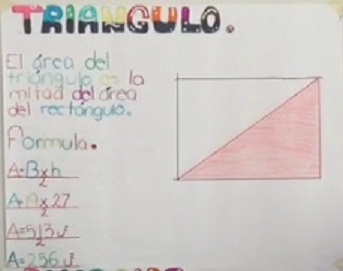 TRIANGULO.
El área del
triángulo es la
mitad del área
del rectángulo.
Formula.
A=Bxh
2
A=19x27
2
A=513
2
A=256